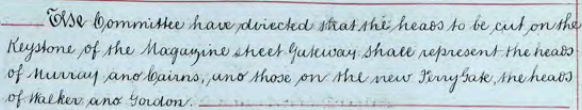 The Committee have directed that the heads to be cut on the
Keystone of the Magazine street Gateway shall represent the heads
of Murray and Cairns, and those on the new Ferry Gate, the heads
of Walker and Gordon.